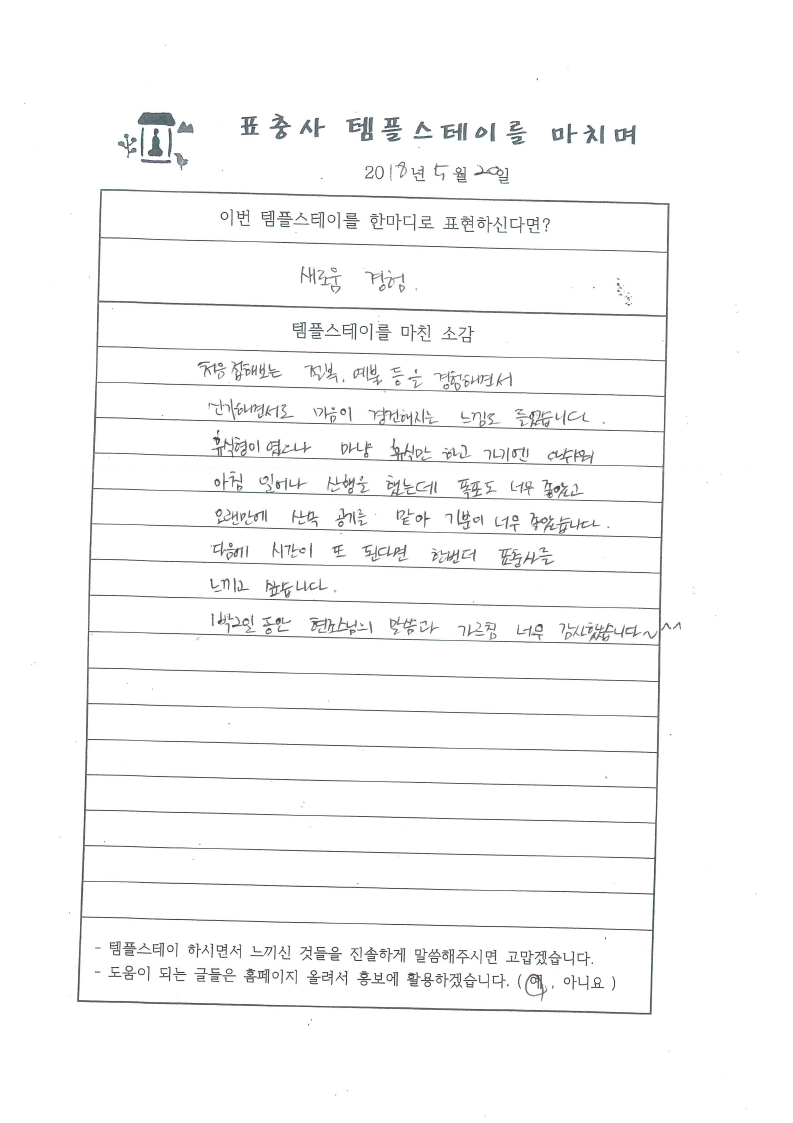 표충사 템플스테이를 마치며
2018년 5월 20일
이번 템플스테이를 한마디로 표현하신다면?
새로움 경험.
템플스테이를 마친 소감
처음 접해보는 절복, 예불 등을 경험해면서
신기해면서로 마음이 경건해지는 느낌도 들었습니다.
휴식형이였으나 마냥 휴식만 하고 가기엔 아쉬워
아침 일어나 산행을 했는데 폭포도 너무 좋았고
오랜만에 산속 공기를 맡아 기분이 너무 좋았습니다.
다음에 시간이 또 된다면 한번더 표충사를
느끼고 싶습니다.
1박2일 동안 현조스님의 말씀과 가르침 너무 감사했습니다~^^
- 템플스테이 하시면서 느끼신 것들을 진솔하게 말씀해주시면 고맙겠습니다.
- 도움이 되는 글들은 홈페이지 올려서 홍보에 활용하겠습니다. ( 예 , 아니요 )